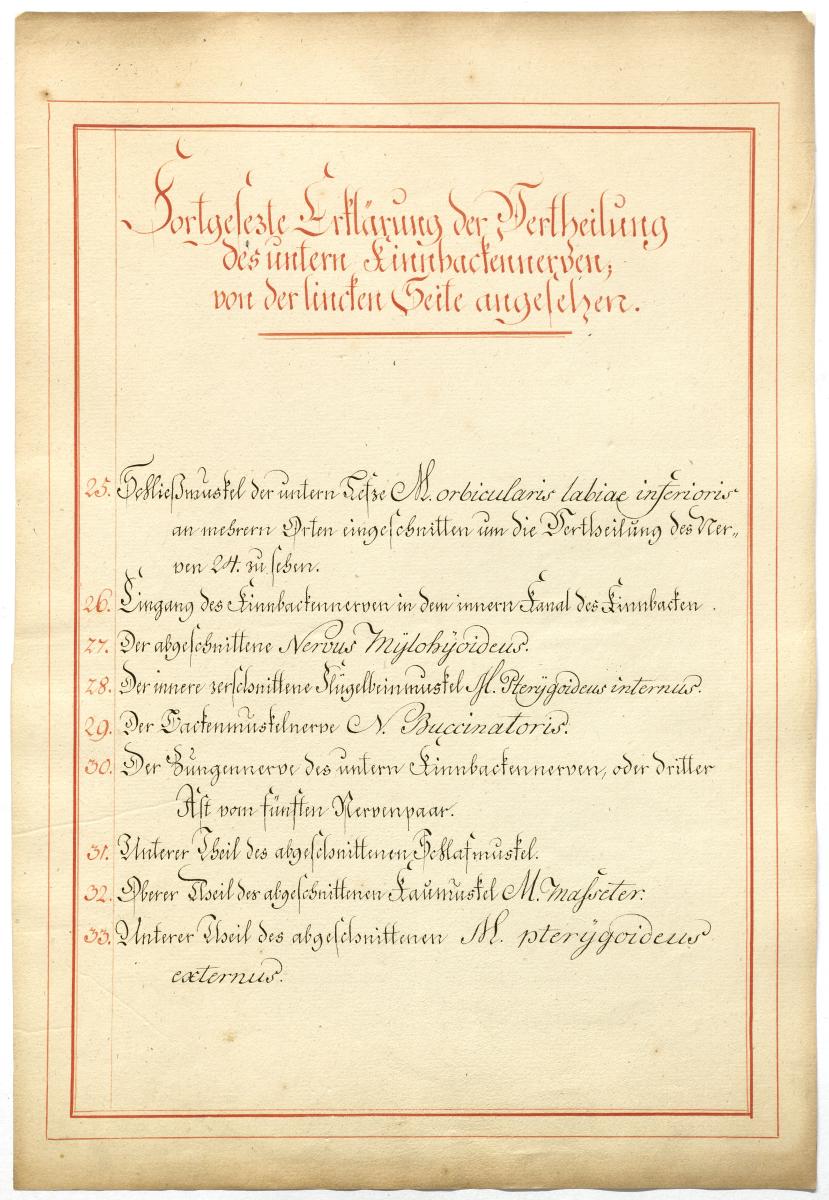 Fortgesezte Erklärung der Vertheilung
des untern Kinnbackennerven,
von der lincken Seite angesehen.
25. Schließmuskel der untern Lefze M. orbicularis labiae inferioris
an mehrern Orten eingeschnitten um die Vertheilung des Ner„
ven 24. zu sehen.
26. Eingang des Kinnbackennerven in dem innern Kanal des Kinnbacken.
27. Der abgeschnittene Nervus Mÿlohÿoideus.
28. Der innere zerschnittene Flügelbeinmuskel M. Pterÿgoideus internus.
29. Der Backenmuskelnerve N. Buccinatoris.
30. Der Zungennerve des untern Kinnbackennerven, oder dritter
Ast vom fünften Nervenpaar.
31. Unterer Theil des abgeschnittenen Schlafmuskel.
32. Oberer Theil des abgeschnittenen Kaumuskel M. Masseter.
33. Unterer Theil des abgeschnittenen M. pterÿgoideus
externus.